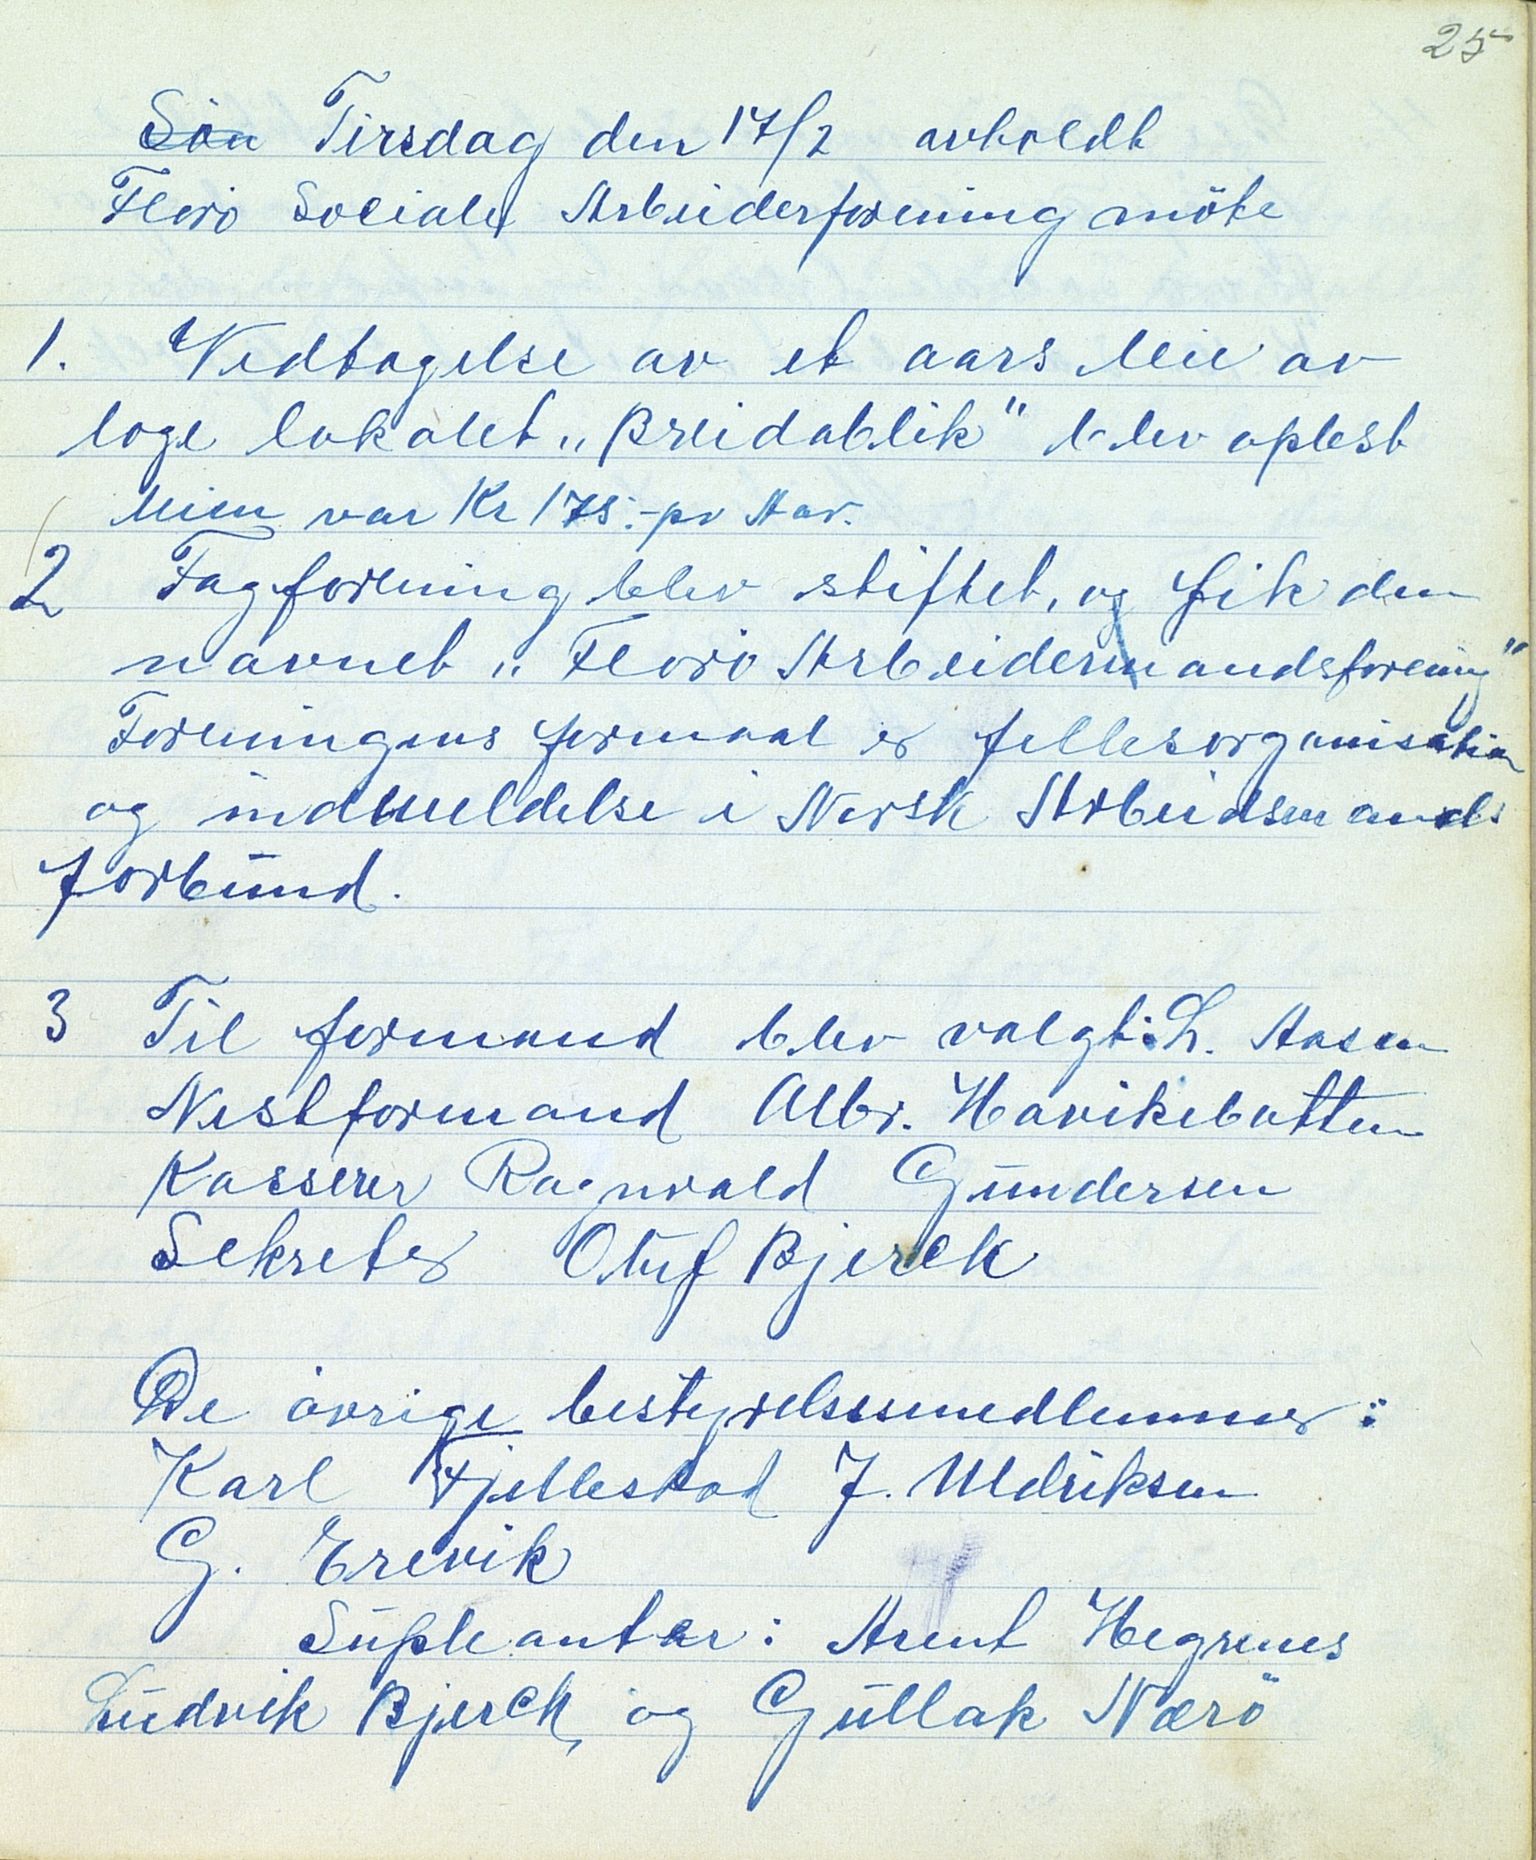 25
Søn Tirsdag den 17/2 avholdt
Florø Sociale Arbeiderforening möte
1. Vedtagelse av et aars leie av
loge lokalet „Breidablik" blev oplest
leien var Kr 175.- pr Aar.
2 Fagforening blev stiftet, og fik den
navnet „Florø Arbeidermandsforening"
Foreningens formaal er fellesorganisation
og indmeldelse i Norsk Arbeidsmands
forbund.
3 Til formand blev valgt: L. Aasen
Nestformand Albr. Havikebotten
Kasserer Ragnvald Gundersen
Sekretær Oluf Bjerck
De övrige bestyrelsesmedlemmer:
Karl Fjellestad J. Uldriksen
G. Erevik
Supleanter: Arent Hegrenes
Ludvik Bjerck, og Gullak Nærö